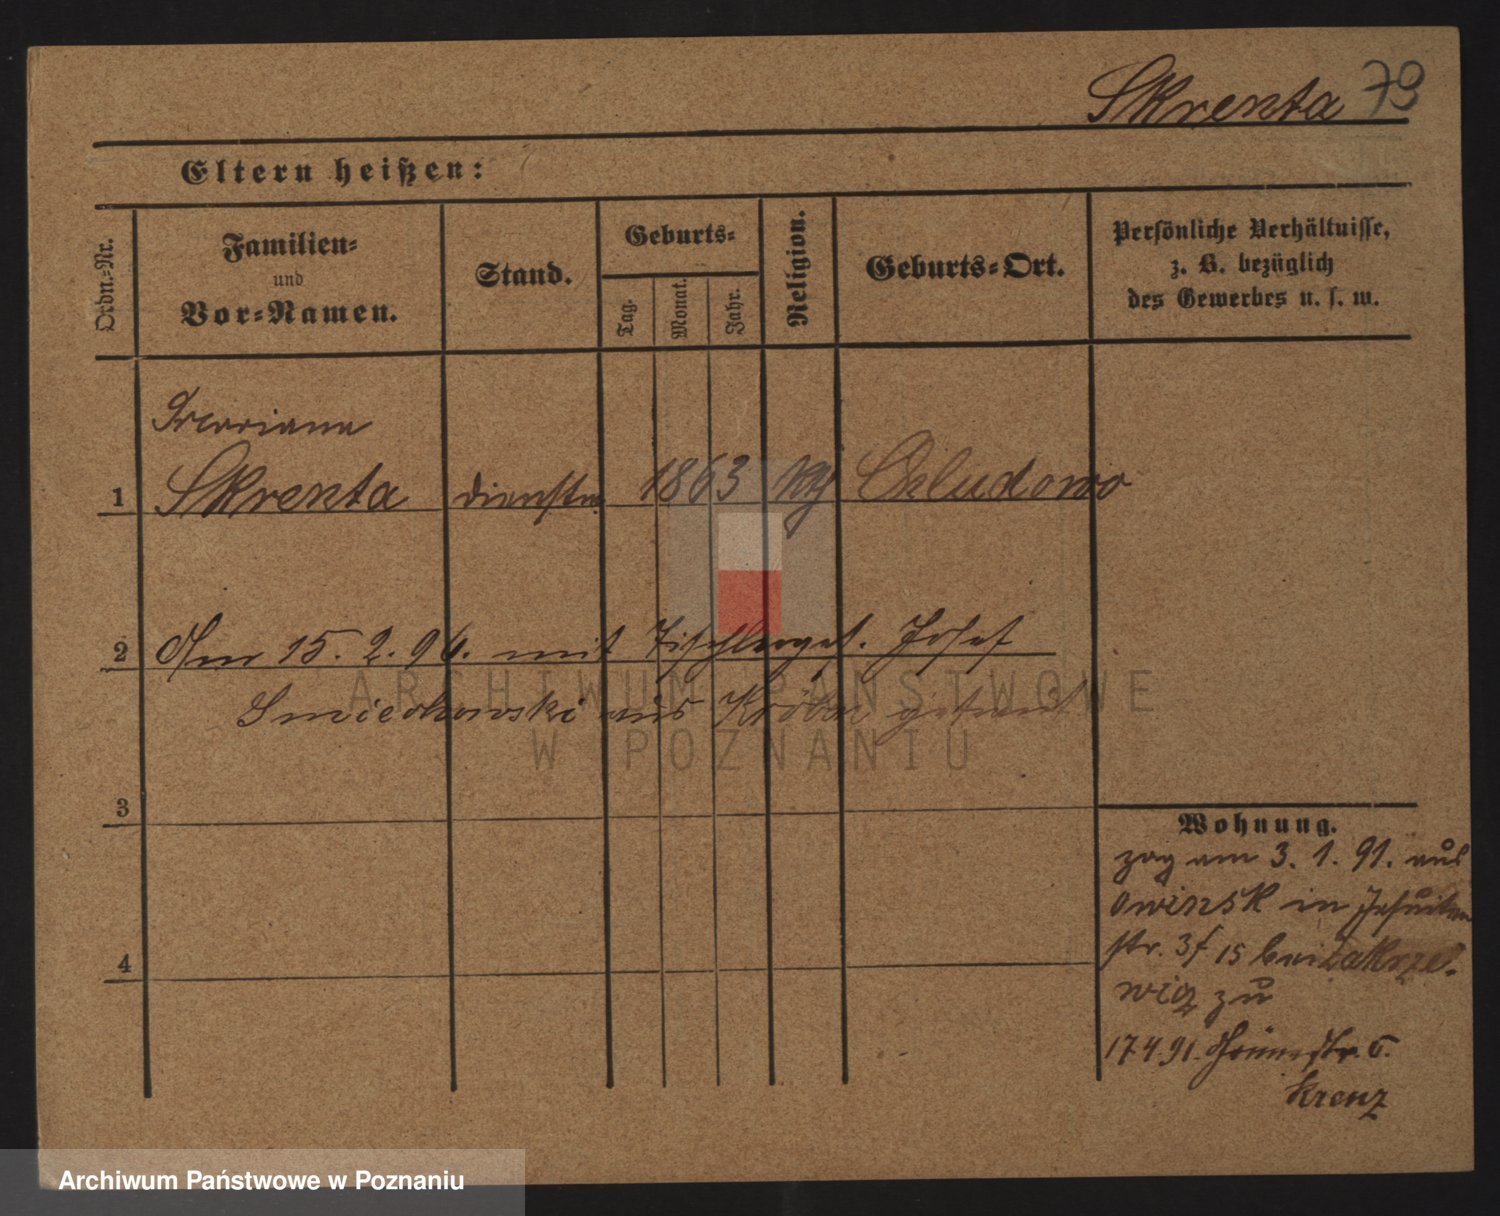 Skrenta 79
Eltern heißen:
Ordn.-Nr.
Familien-
und
Vor-Namen.
Stand.
Geburts-
Tag.
Monat.
Jahr.
Religion.
Geburts-Ort.
Persönliche Verhältnisse,
z. B. bezüglich
des Gewerbes u. s. w.
Marianna
1 Skrenta 1863 Chludowo
2 Am 15. 2. 96. mit Tischlerges. Josef
aus
3
4
Wohnung.
zog am 3. 1. 91. aus
Owinsk in Jesuiten
str. 3/ 15 bei Zakrze-
wicz zu
17.4.91.
Krenz
ARCHIWUM PAŃSTWOWE
W POZNANIU
Archiwum Państwowe w Poznaniu